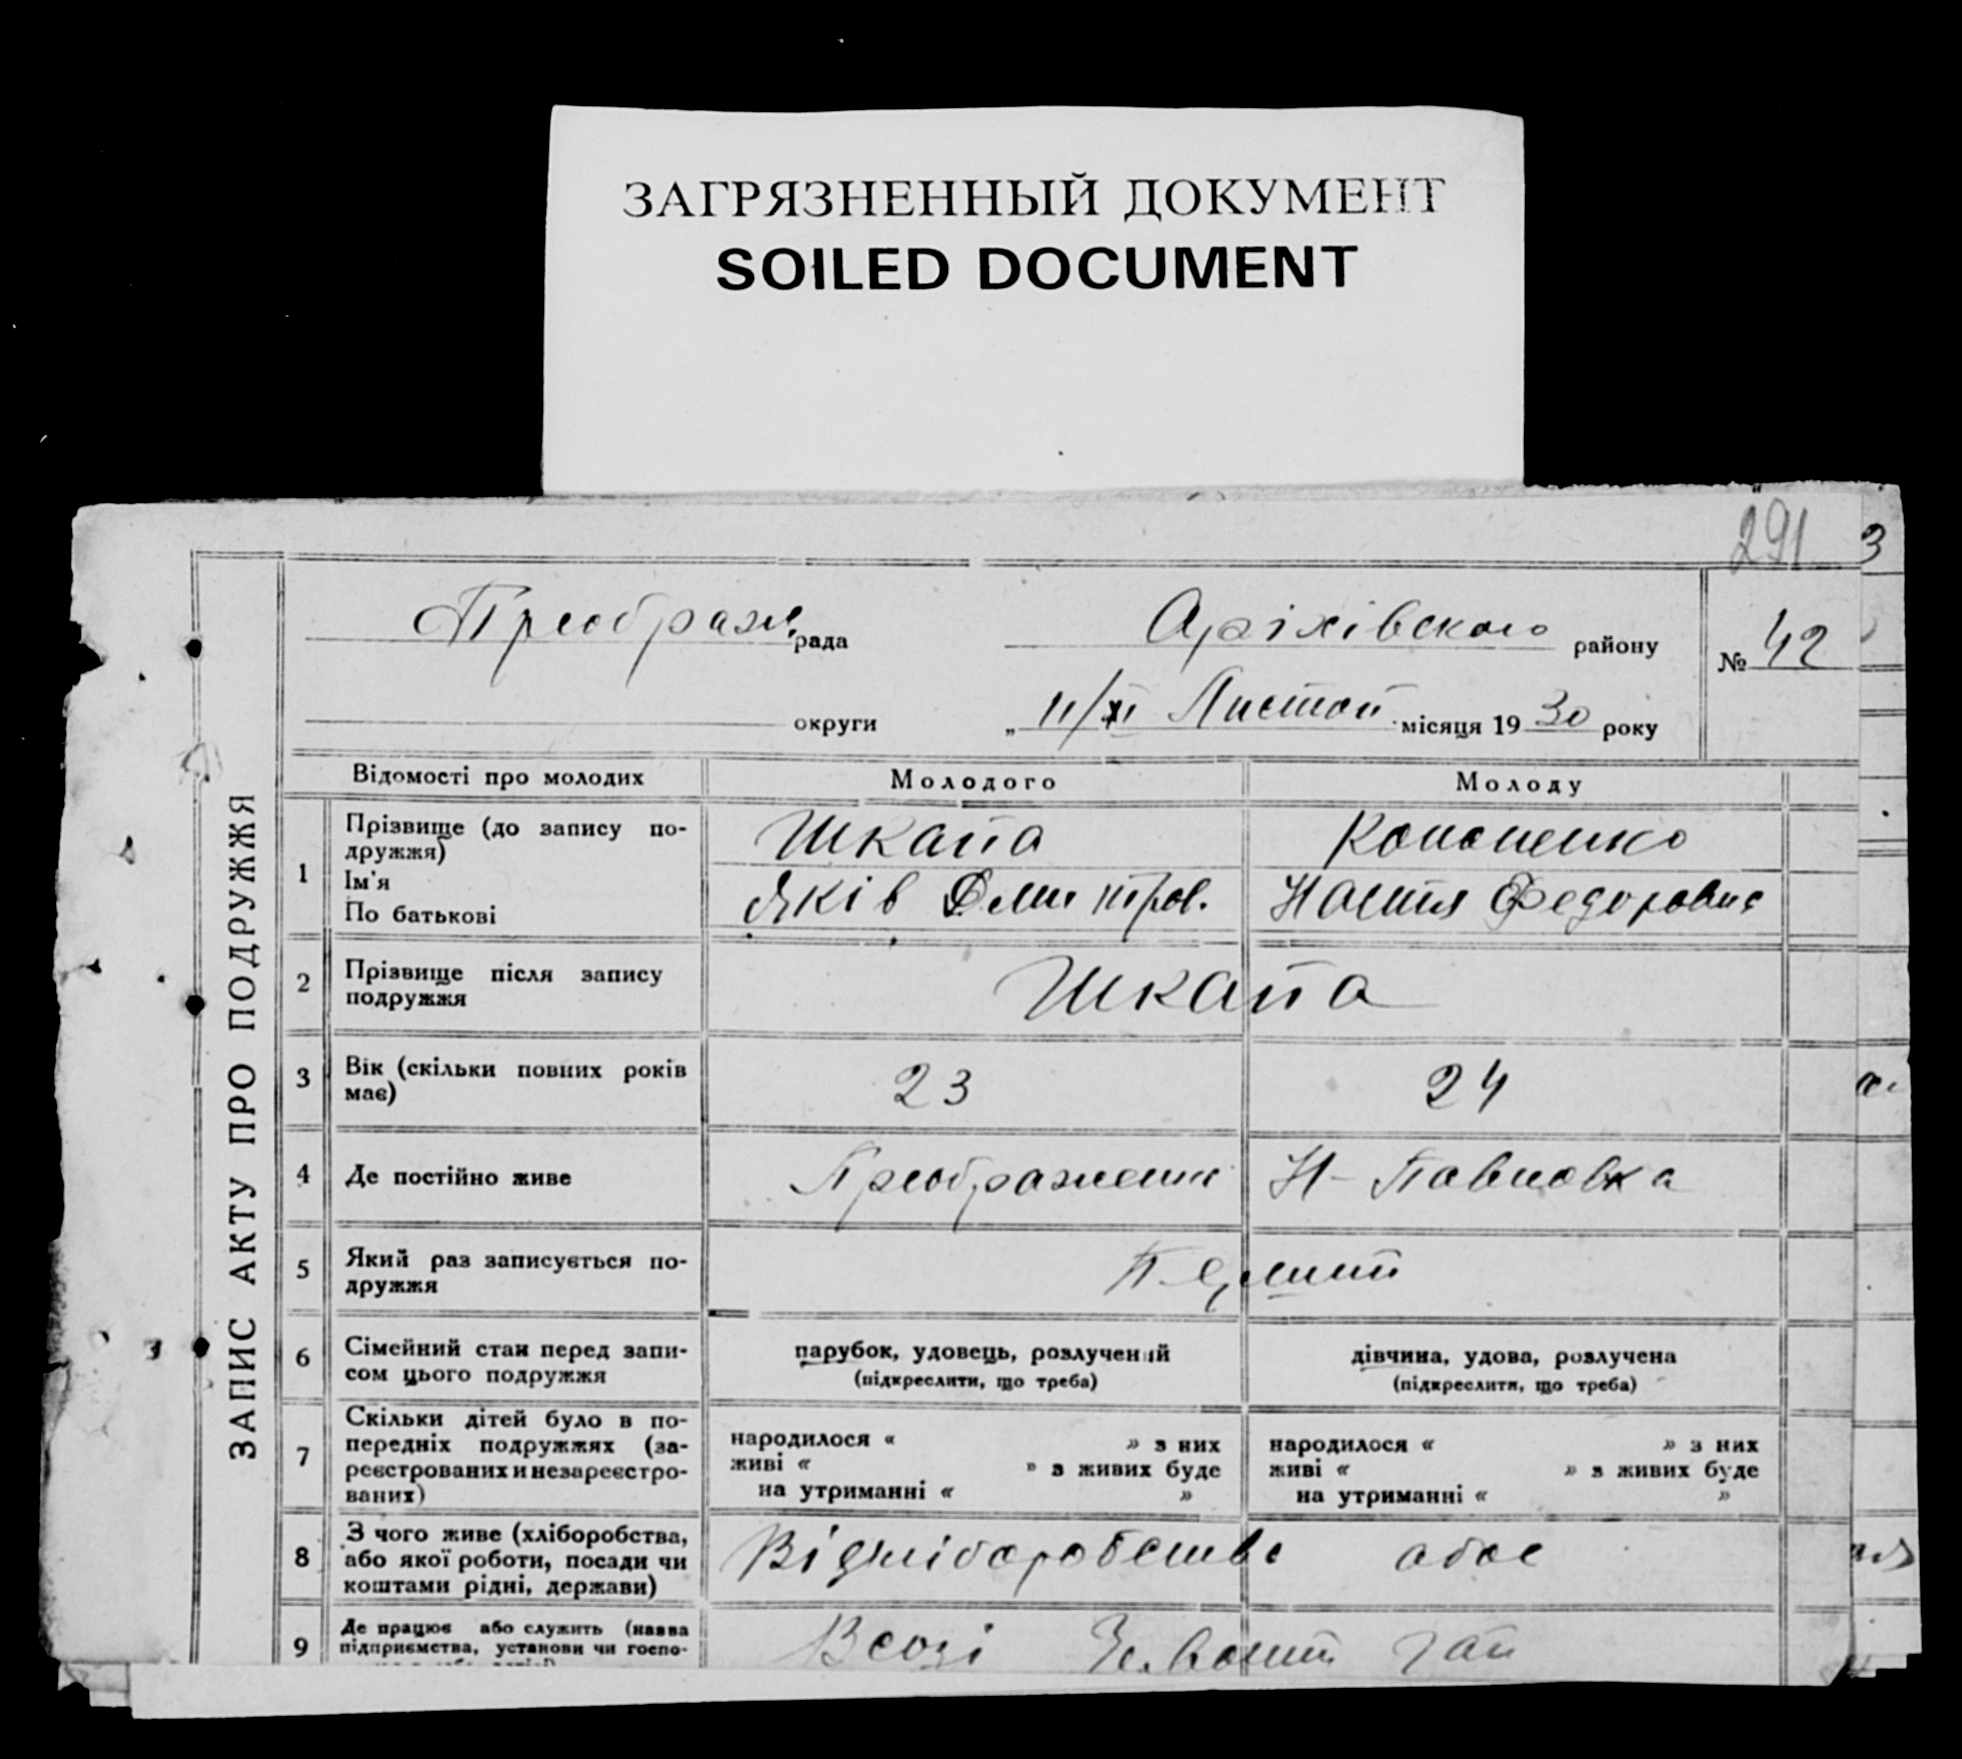 ЗАГРЯЗНЕННЫЙ ДОКУМЕНТ
SOILED DOCUMENT
291
3
Преображ. рада Оріхівского району № 42
округи „ 11/XI Листоп. місяця 19 30 року
ЗАПИС АКТУ ПРО ПОДРУЖЖЯ
Відомості про молодих Молодого Молоду
1 Прізвище (до запису по-
дружжя) Шкапа Кононенко
Ім'я
По батькові Яків Дмитров. Настя Федоровна
2 Прізвище після запису
подружжя Шкапа
3 Вік (скільки повних років
має) 23 24
4 Де постійно живе Преображенк Н-Павловка
5 Який раз записується по-
дружжя Перший
6 Сімейний стан перед запи-
сом цього подружжя
парубок, удовець, розлучений
(підкреслити, що треба)
дівчина, удова, розлучена
(підкреслити, що треба)
7 Скільки дітей було в по-
передніх подружжях (за-
реєстрованих и незареєстро-
ваних)
народилося « » з них
живі « » з живих буде
на утриманні « »
народилося « » з них
живі « » з живих буде
на утриманні « »
8 З чого живе (хліборобства,
або якої роботи, посади чи
коштами рідні, держави)
Від хліборобства обоє
9 Де працює або служить (назва
підприємства, установи чи госпо-
В созі Гай